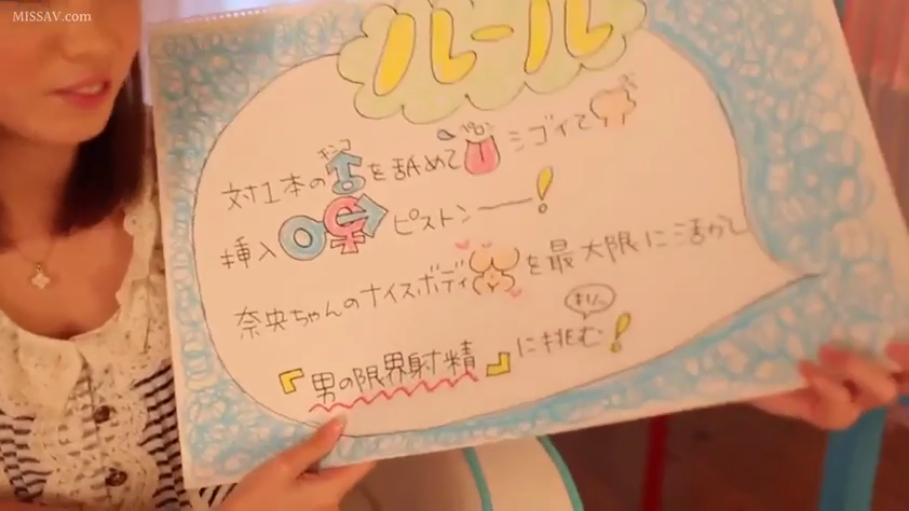 MISSAV.com
ルール
対1本の チンコ を舐めて ペロン シゴイて
挿入 ピストン──!
奈央ちゃんのナイスボディを最大限に活かし
『男の限界射精』に挑む!